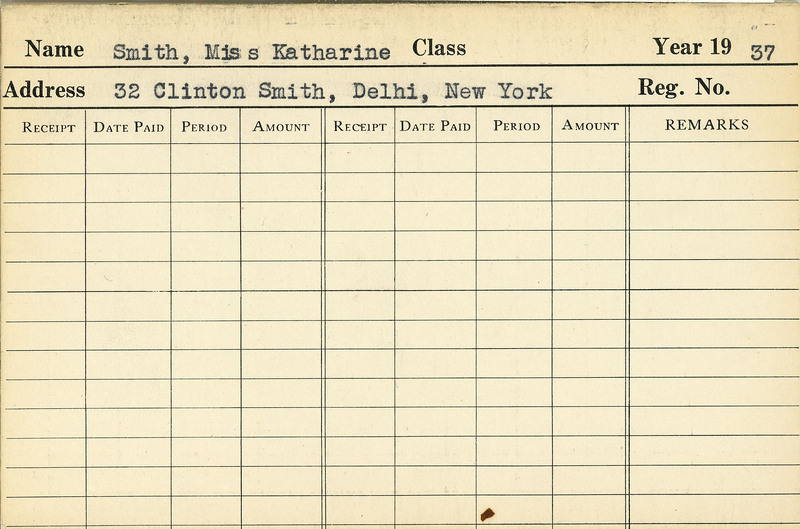 Name Smith, Miss Katharine Class Year 19 37
Address 32 Clinton Smith, Delhi, New York Reg. No.
RECEIPT DATE PAID PERIOD AMOUNT RECEIPT DATE PAID PERIOD AMOUNT REMARKS